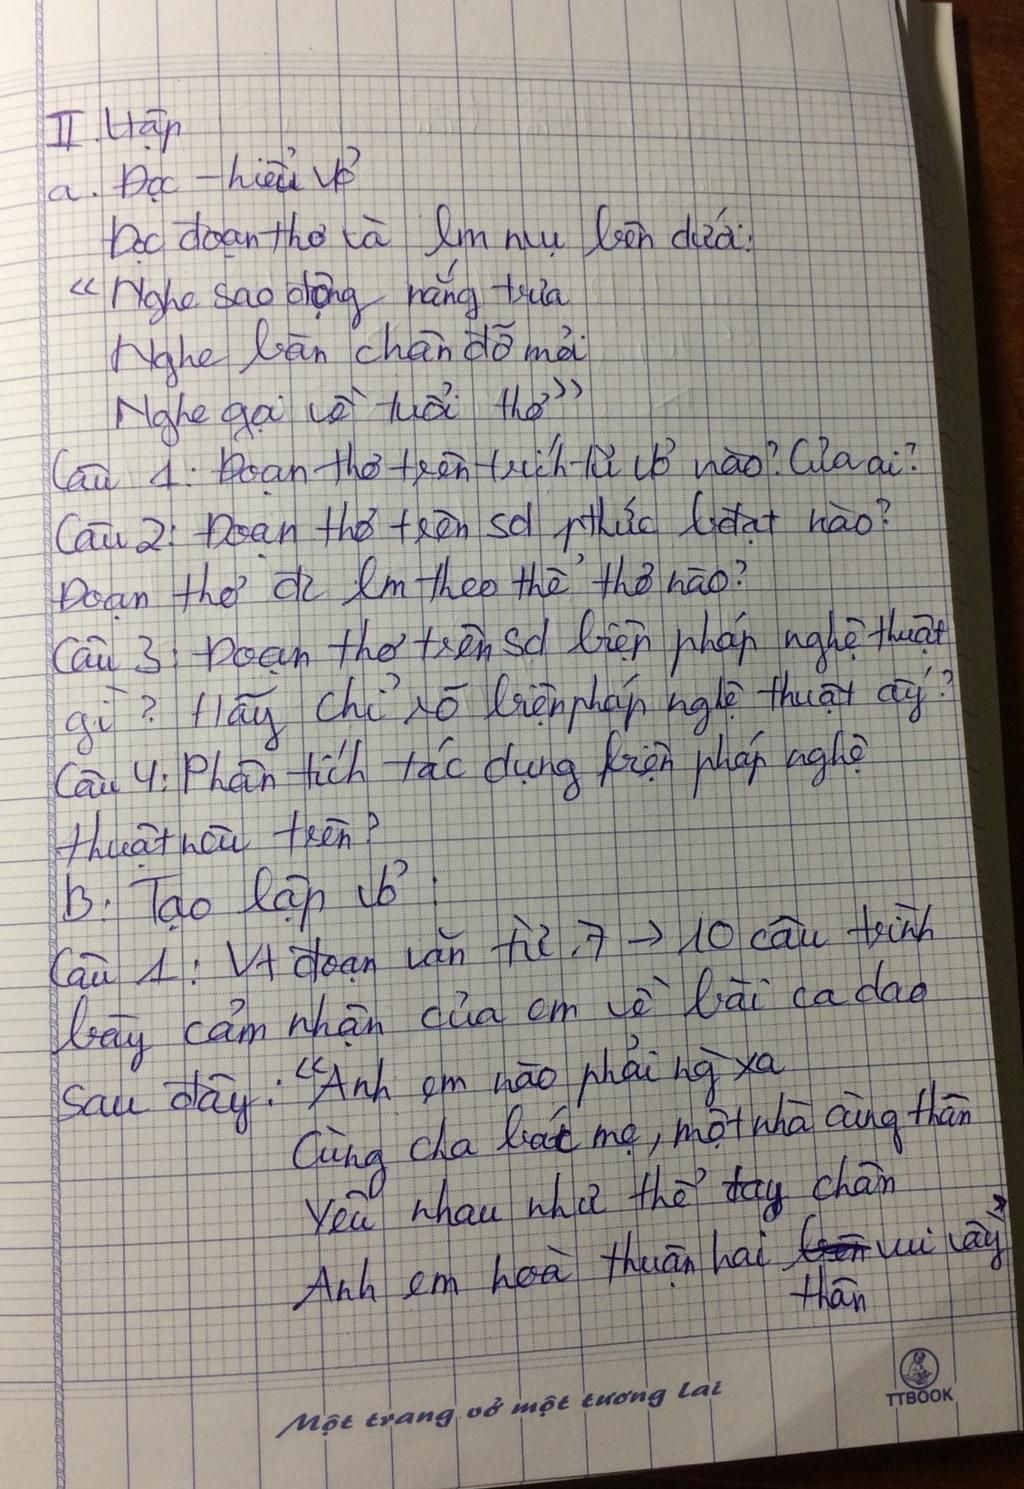 II. Hập
a. Đọc - hiểu vb
Đọc đoạn thơ và lm nvụ bên dưới:
"Nghe sao động nắng trưa
Nghe bàn chân đỡ mỏi
Nghe gọi về tuổi thơ"
Câu 1: Đoạn thơ trên trích từ vb nào? Của ai?
Câu 2: Đoạn thơ trên sd pthức bđạt nào?
Đoạn thơ đc lm theo thể thơ nào?
Câu 3: Đoạn thơ trên sd biện pháp nghệ thuật
gì? Hãy chỉ rõ biện pháp nghệ thuật ấy?
Câu 4: Phân tích tác dụng biện pháp nghệ
thuật nêu trên?
B. Tạo lập vb:
Câu 1: Vt đoạn văn từ 7 → 10 câu trình
bày cảm nhận của em về bài ca dao
sau đây: "Anh em nào phải ng xa
Cùng cha bác mẹ, một nhà cùng thân
Yêu nhau như thể tay chân
Anh em hoà thuận hai thân vui vầy"
Một trang vở một tương lai
TTBOOK